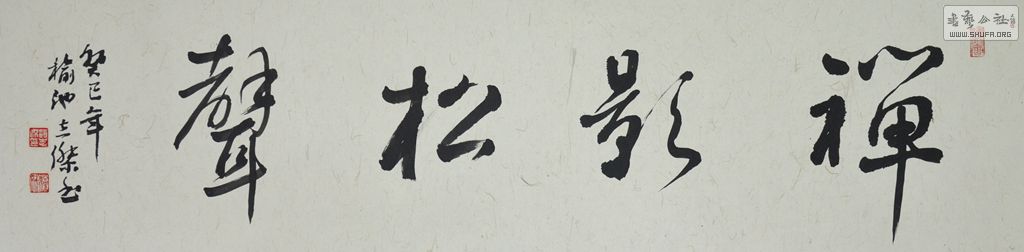 禪影松聲
癸巳年
榆池立傑書
書藝公社
WWW.SHUFA.ORG